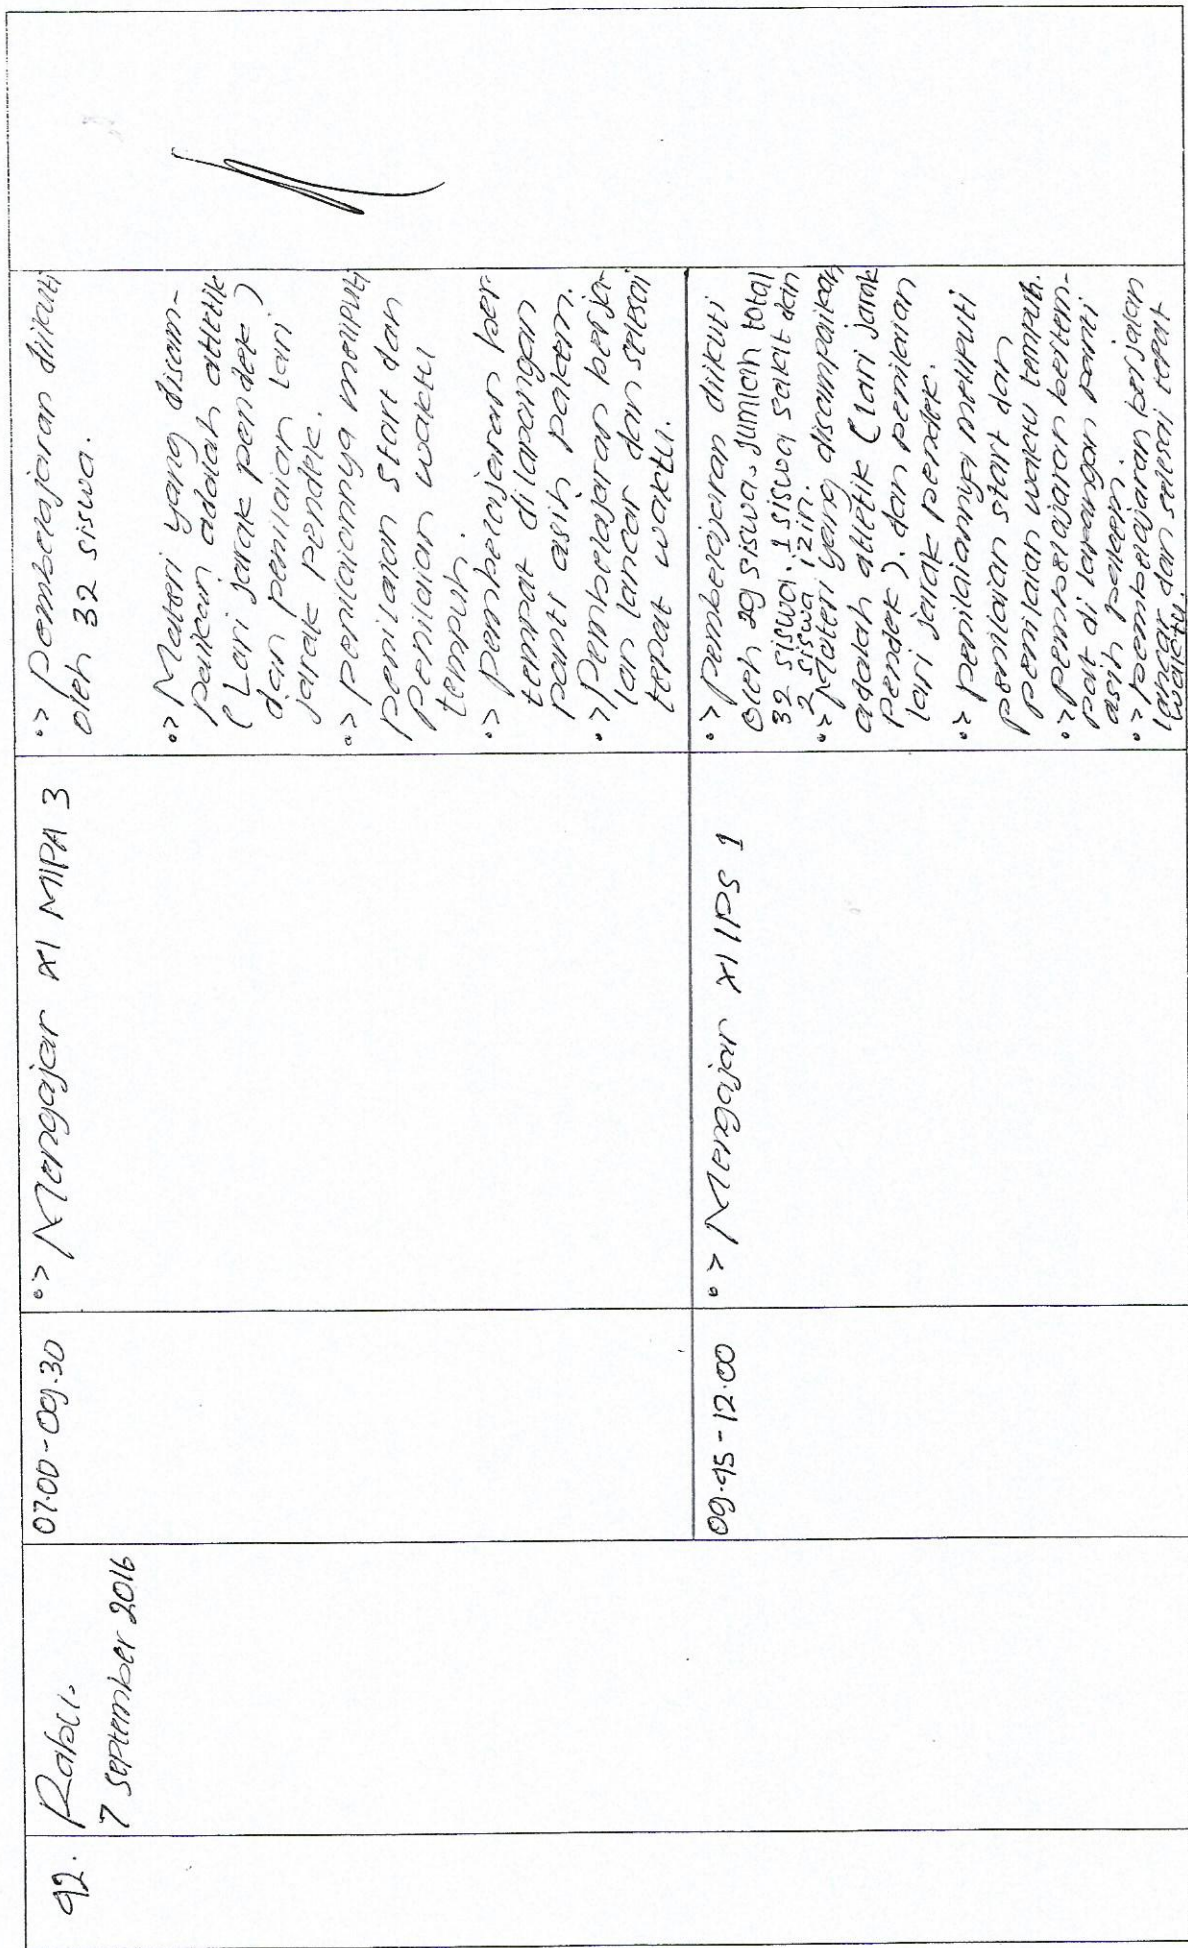 42.
Rabu.
7 September 2016
07.00-09.30
°> Mengajar XI MIPA 3
°> Pembelajaran diikuti
oleh 32 siswa.
°> Materi yang disam-
paikan adalah atletik
(Lari jarak pendek)
dan penilaian lari
jarak pendek.
°> penilaiannya meliputi
penilaian start dan
penilaian waktu
tempuh.
°> pembelajaran ber
tempat dilapangan
panti asih pakem.
°> Pembelajaran berja-
lan lancar dan selesai
tepat waktu.
09.45-12.00
°> Mengajar XI IPS 1
°> pembelajaran diikuti
oleh 29 siswa. Jumlah total
32 siswa. 1 siswa sakit dan
2 siswa izin.
°> Materi yang disampaikan
adalah atletik (lari jarak
pendek). dan penilaian
lari jarak pendek.
°> penilaiannya meliputi
penilaian start dan
penilaian waktu tempuh.
°> pembelajaran bertem-
pat di lapangan panti
asih pakem.
°> pembelajaran berjalan
lancar dan selesai tepat
waktu.